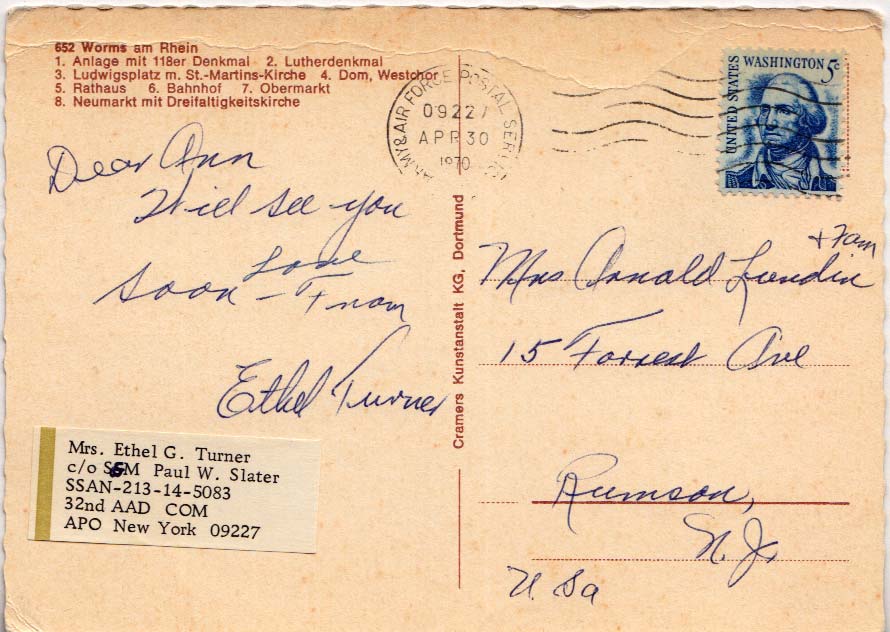 652 Worms am Rhein
1. Anlage mit 118er Denkmal 2. Lutherdenkmal
3. Ludwigsplatz m. St.-Martins-Kirche 4. Dom, Westchor
5. Rathaus 6. Bahnhof 7. Obermarkt
8. Neumarkt mit Dreifaltigkeitskirche
ARMY & AIR FORCE POSTAL SERVICE
09227
APR 30
1970
UNITED STATES
WASHINGTON 5c
Dear Ann
Will see you
Love
Soon – From
Ethel Turner
Mrs. Ethel G. Turner
c/o SGM Paul W. Slater
SSAN-213-14-5083
32nd AAD COM
APO New York 09227
Cramers Kunstanstalt KG, Dortmund
+ Fam
Mrs Donald Lundin
15 Forrest Ave
Rumson,
N. J.
U. Sa